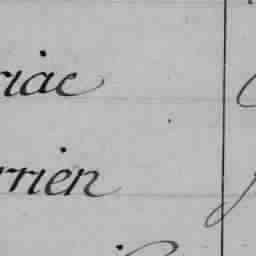 riac
rrien